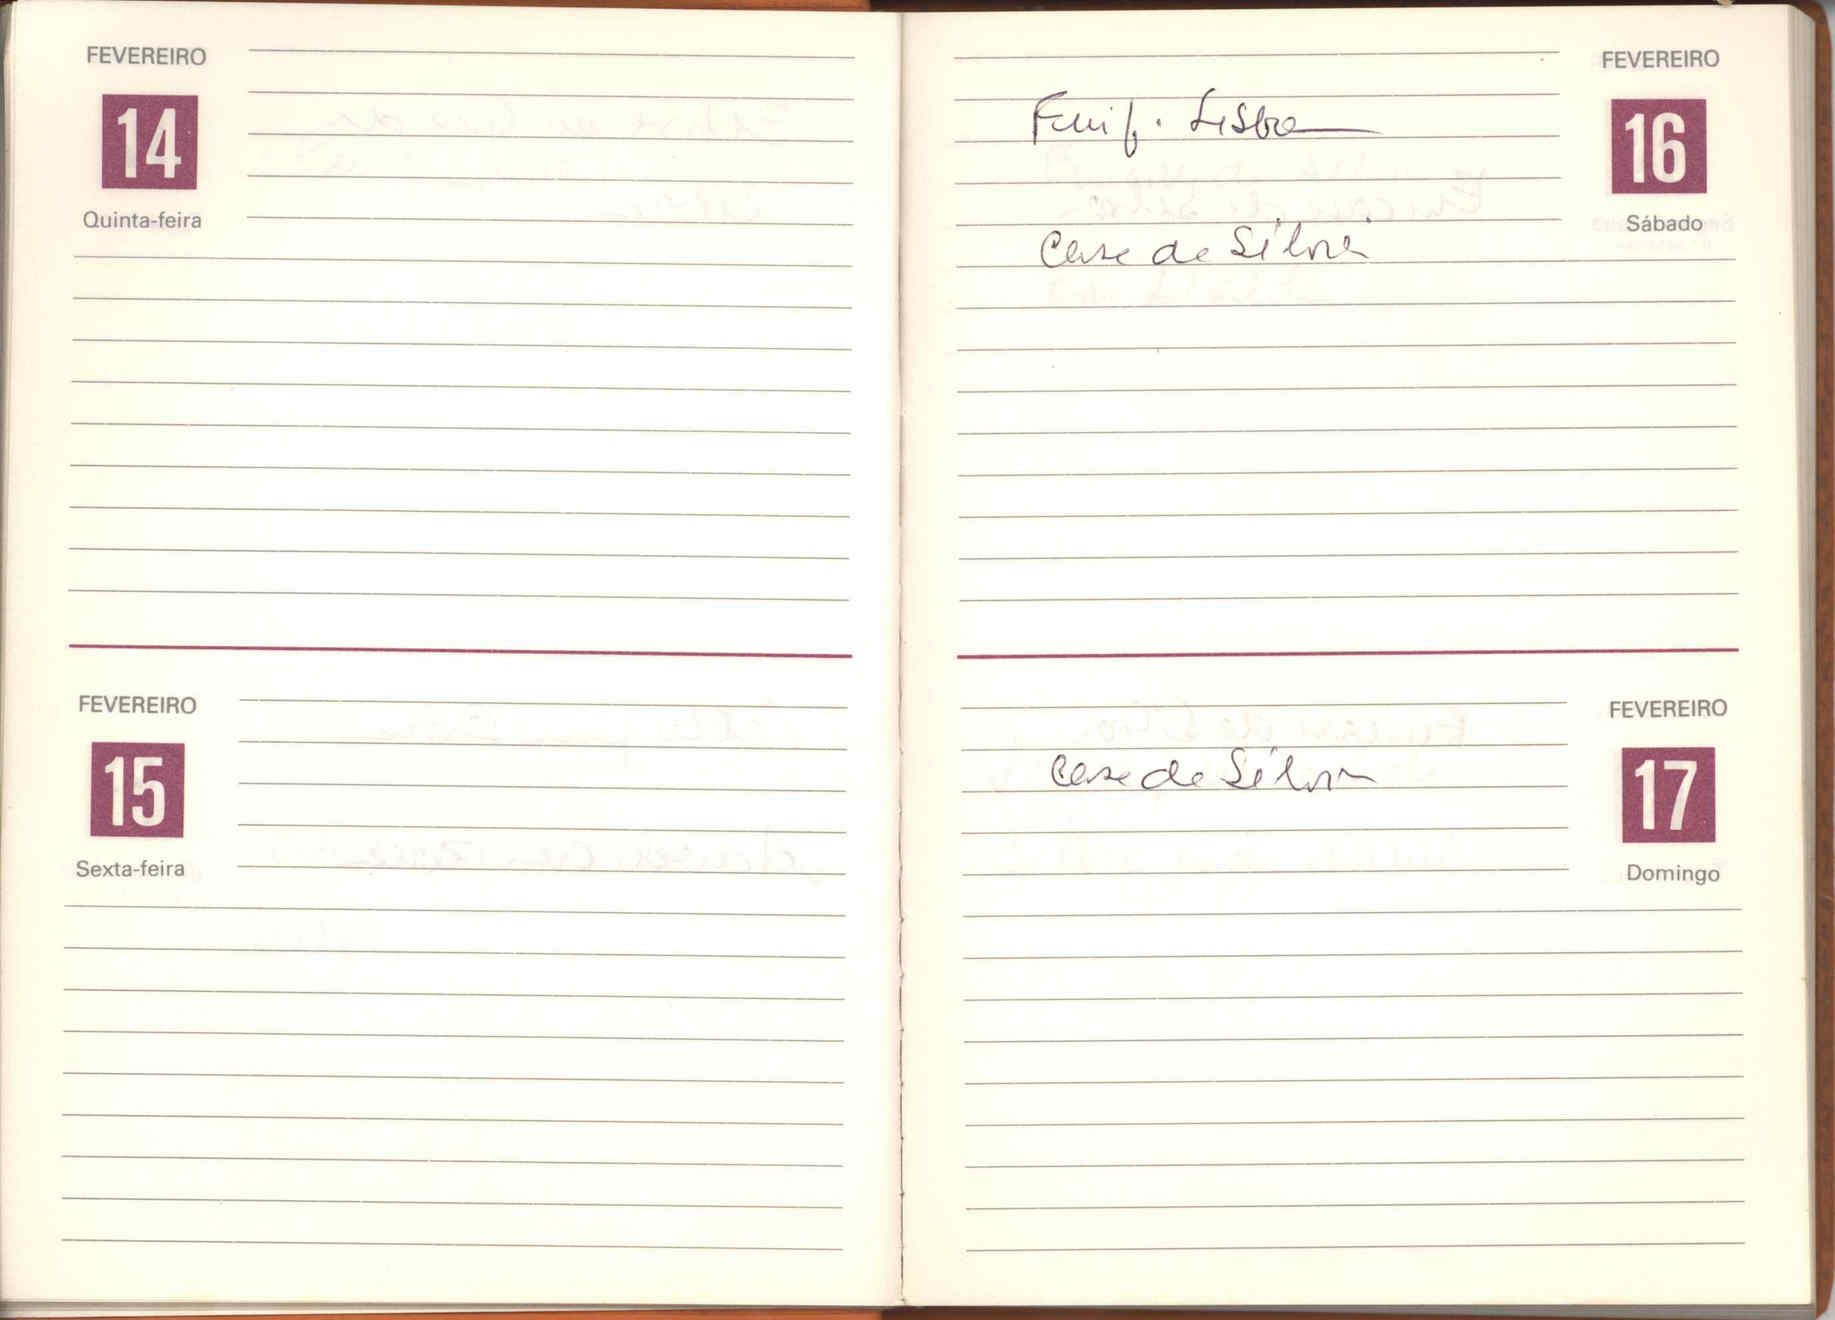 FEVEREIRO
14
Quinta-feira
FEVEREIRO
15
Sexta-feira
FEVEREIRO
16
Sábado
Fui p. Lisboa
Casa de Sílvia
FEVEREIRO
17
Domingo
Casa de Sílvia